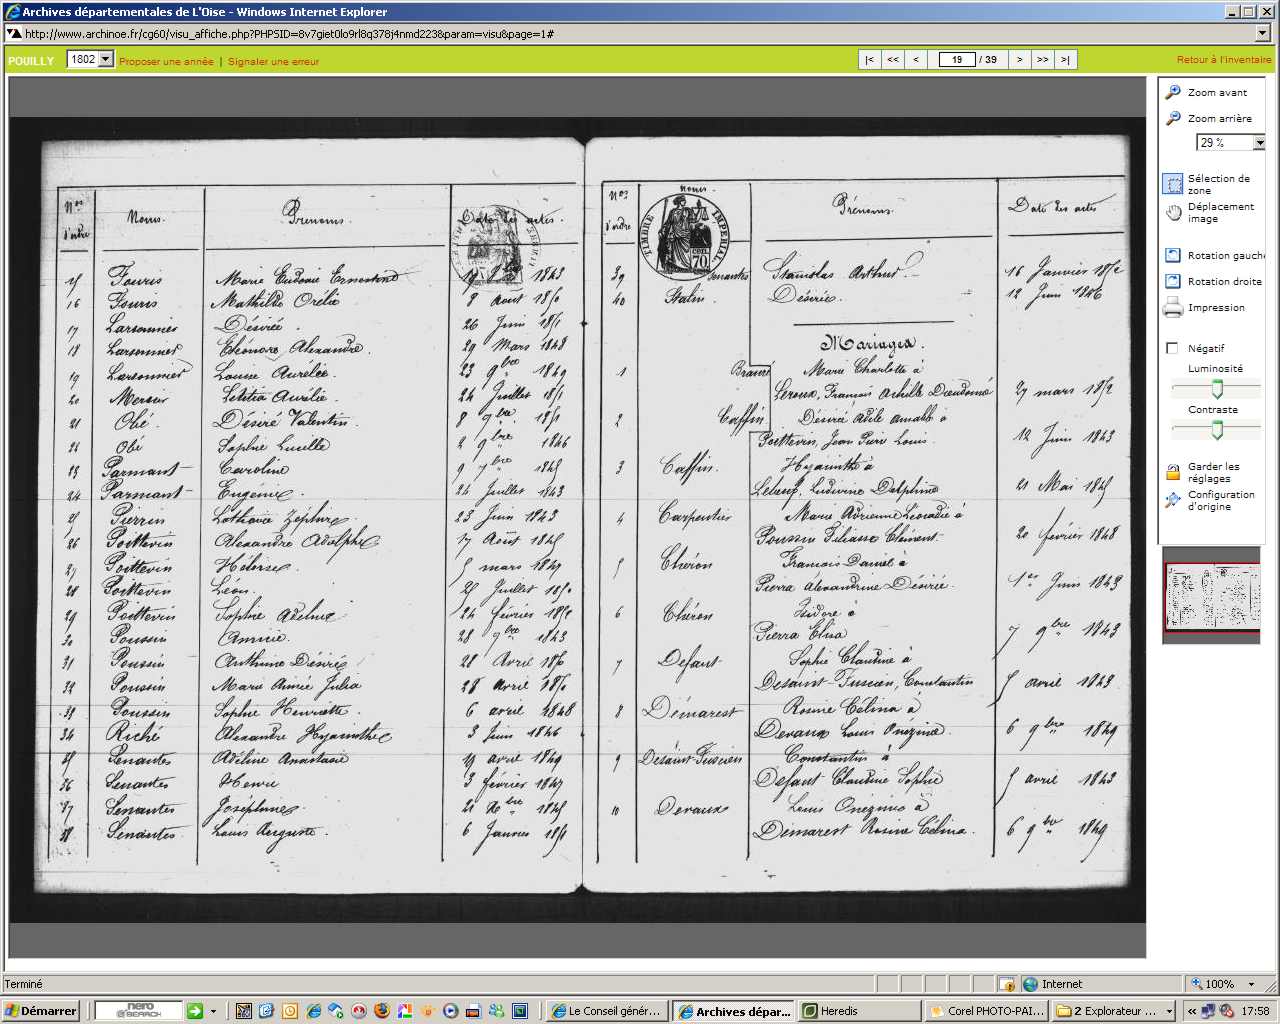 Archives départementales de L'Oise - Windows Internet Explorer
http://www.archinoe.fr/cg60/visu_affiche.php?PHPSID=8v7giet0lo9rl8q378j4nmd223&param=visu&page=1#
POUILLY 1802 Proposer une année | Signaler une erreur |< << < 19 / 39 > >> >| Retour à l'inventaire
Zoom avant
Zoom arrière
29 %
Sélection de
zone
Déplacement
image
Rotation gauche
Rotation droite
Impression
Négatif
Luminosité
Contraste
Garder les
réglages
Configuration
d'origine
Nos d'ordre Noms. Prénoms. Date des actes.
Marie Eudoxie Ernestine 1843
16 Mathilde 8 août
17 Larsonnier Désirée. 26 Juin 1851
18 Larsonnier Eléonore Alexandre. 29 Mars 1848
19 Larsonnier Louise Aurélie. 23 9bre 1849
20 Letitia Aurélie. 24 Juillet 1851
21 Obé. Désiré Valentin. 8 9bre 1851
Obé Sophie Lucille 2 9bre 1846
23 Parmant Caroline 9 7bre 1845
24 Parmant Eugénie. 24 Juillet 1843
Pierrin 23 Juin 1843
26 Poittevin Alexandre Adolphe 17 Août 1845
27 Poittevin Héloïse 5 mars 1847
28 Poittevin Léon. Juillet
29 Poittevin Sophie 24 février
30 Poussin 28 9bre 1843
31 Poussin Anthime Désiré 28 Avril
32 Poussin Marie Aimée Julia 28 avril
33 Poussin Sophie Henriette. 6 avril 1848
34 Riché Alexandre Hyacinthe 3 Juin 1846
35 Senantes Adéline Anastasie 19 avril 1849
36 Senantes Henri 3 février 1847
37 Senantes Joséphine 1845
38 Senantes Louis Auguste. 6 Janvier 1851
Nos d'ordre Noms. Prénoms. Date des actes
TIMBRE IMPERIAL
CEN. 70
39 Senantes Stanislas Arthur 16 Janvier 1852
40 Stalin Désirée. 12 Juin 1846
Mariages.
1 Marie Charlotte à
Leroux, François Achille Dieudonné 27 mars 1852
2 Caffin. Désiré Adèle Amable à
Poittevin, Jean Pierre Louis. 12 Juin 1843
3 Caffin. Hyacinthe à
Ludivine Delphine 21 Mai 1845
4 Carpentier Marie Adrienne Léocadie à
Poussin Clément 20 février 1848
5 Chéron François Daniel à
Pierra Alexandrine Désirée 1er Juin 1843
6 Chéron Isidore à
Pierra Elisa 7 9bre 1843
7 Defaut Sophie Claudine à
Desaint-Fuscien, Constantin 5 avril 1843
8 Démarest Rosine Célina à
Devaux Louis Onézime. 6 9bre 1849
9 Desaint-Fuscien Constantin à
Defaut Claudine Sophie 5 avril 1843
10 Devaux Louis Onézime à
Démarest Rosine Célina. 6 9bre 1849
Terminé Internet 100%
Démarrer nero SEARCH Le Conseil génér... Archives dépar... Heredis Corel PHOTO-PAI... 2 Explorateur ... 17:58